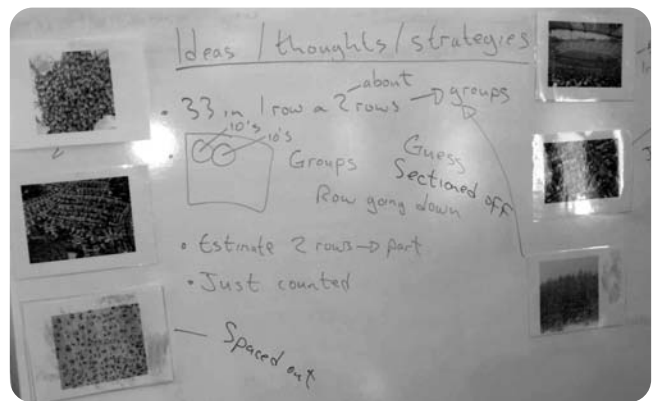 Ideas / thoughts / strategies
about
• 33 in 1 row a 2 rows → groups
10's
10's
• Groups
Guess
Sectioned off
Row going down
• Estimate 2 rows → part
• Just counted
Spaced out